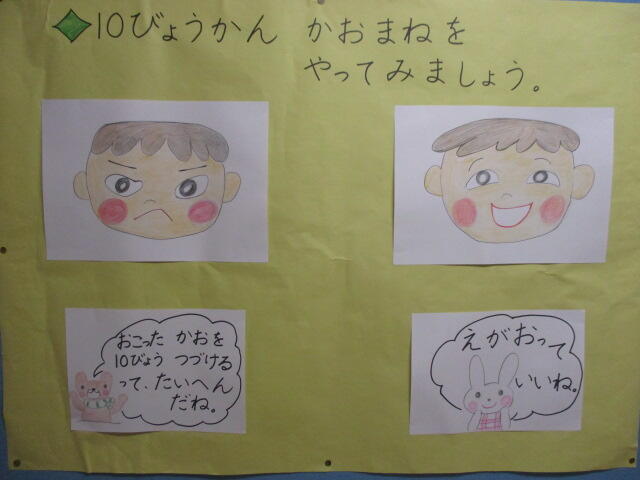 10びょうかん かおまねを
やってみましょう。
おこった かおを
10びょう つづける
って、たいへん
だね。
えがおって
いいね。